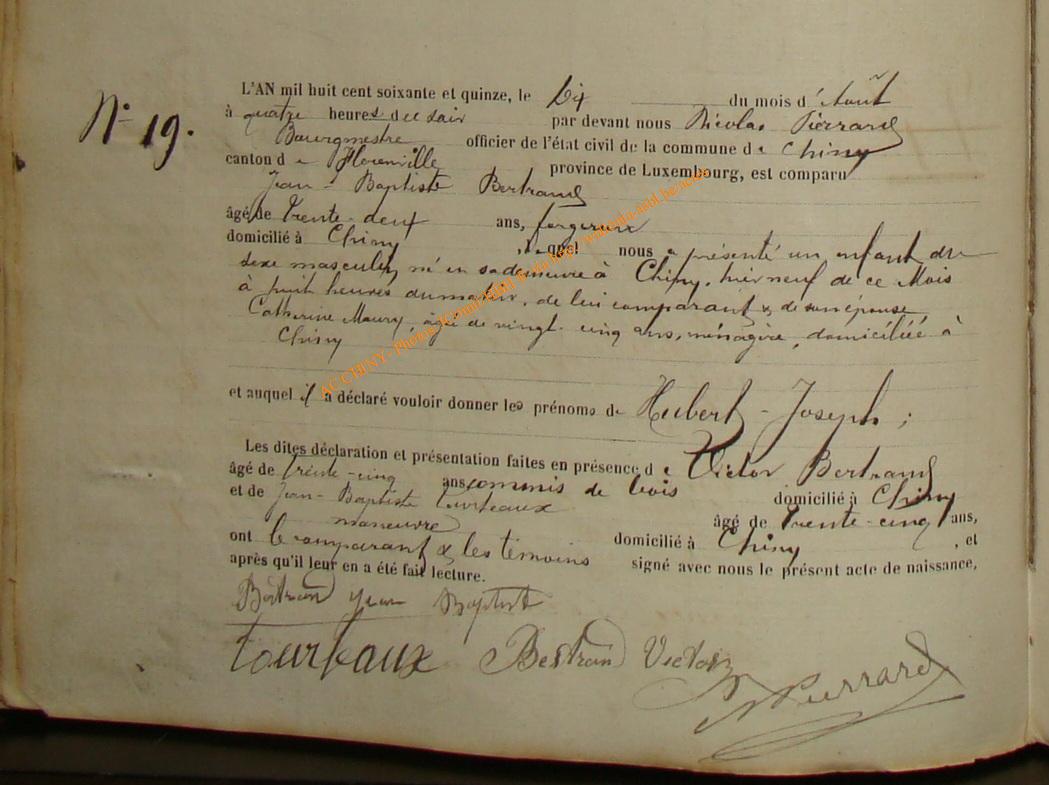 N° 19.
L'AN mil huit cent soixante et quinze, le Dix du mois d'Août
à quatre heures du soir par devant nous Nicolas Pierrard
Bourgmestre officier de l'état civil de la commune de Chiny
canton de Florenville province de Luxembourg, est comparu
Jean-Baptiste Bertrand
âgé de trente-deux ans, forgeron
domicilié à Chiny, lequel nous a présenté un enfant du
sexe masculin, né en sa demeure à Chiny, hier neuf de ce Mois
à huit heures du matin, de lui comparant & de son épouse
Catherine Maury, âgée de vingt-cinq ans, ménagère, domiciliée à
Chiny
et auquel il a déclaré vouloir donner les prénoms de Hubert-Joseph;
Les dites déclaration et présentation faites en présence de Victor Bertrand
âgé de trente-cinq ans commis de bois domicilié à Chiny
et de Jean-Baptiste Tourteaux âgé de trente-cinq ans,
manœuvre domicilié à Chiny, et
ont le comparant & les témoins signé avec nous le présent acte de naissance,
après qu'il leur en a été fait lecture.
Bertrand Jean Baptist
tourtaux Bertrand Victor
N Pierrard